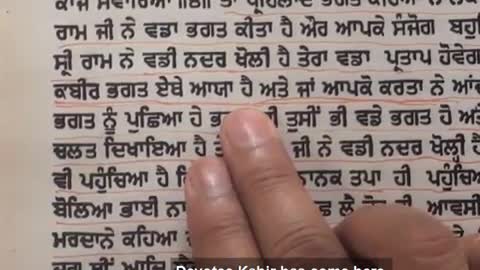 ਕਾਜ ਸਵਾਰਿਆ ਤਾਂ ਪ੍ਰਹਿਲਾਦ ਭਗਤ ਕਹਿਆ ਹੇ
ਰਾਮ ਜੀ ਨੇ ਵਡਾ ਭਗਤ ਕੀਤਾ ਹੈ ਔਰ ਆਪਕੇ ਸੰਜੋਗ ਬਹੁ
ਸ੍ਰੀ ਰਾਮ ਨੇ ਵਡੀ ਨਦਰ ਖੋਲੀ ਹੈ ਤੇਰਾ ਵਡਾ ਪ੍ਰਤਾਪ ਹੋਵੇਗ
ਕਬੀਰ ਭਗਤ ਏਥੇ ਆਯਾ ਹੈ ਅਤੇ ਜਾਂ ਆਪਕੋ ਕਰਤਾ ਨੇ ਆਂ
ਭਗਤ ਨੂੰ ਪੁਛਿਆ ਹੇ ਜੀ ਤੁਸੀਂ ਭੀ ਵਡੇ ਭਗਤ ਹੋ ਅਤੇ
ਚਲਤ ਦਿਖਾਇਆ ਹੈ ਜੀ ਨੇ ਵਡੀ ਨਦਰ ਖੋਲ੍ਹੀ ਹੈ
ਵੀ ਪਹੁੰਚਿਆ ਹੈ ਨਾਨਕ ਤਪਾ ਹੀ ਪਹੁੰਚਿਆ
ਬੋਲਿਆ ਭਾਈ ਲੈ ਆਵਸੀ
ਮਰਦਾਨੇ ਕਹਿਆ
Kabir has come here